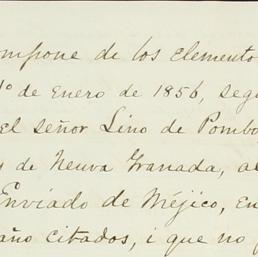 ompone de los elemento
1º de Enero de 1856, segu
el señor Lino de Pombo
de Neuva Granada, al
Enviado de Méjico, en
año citados, i que no